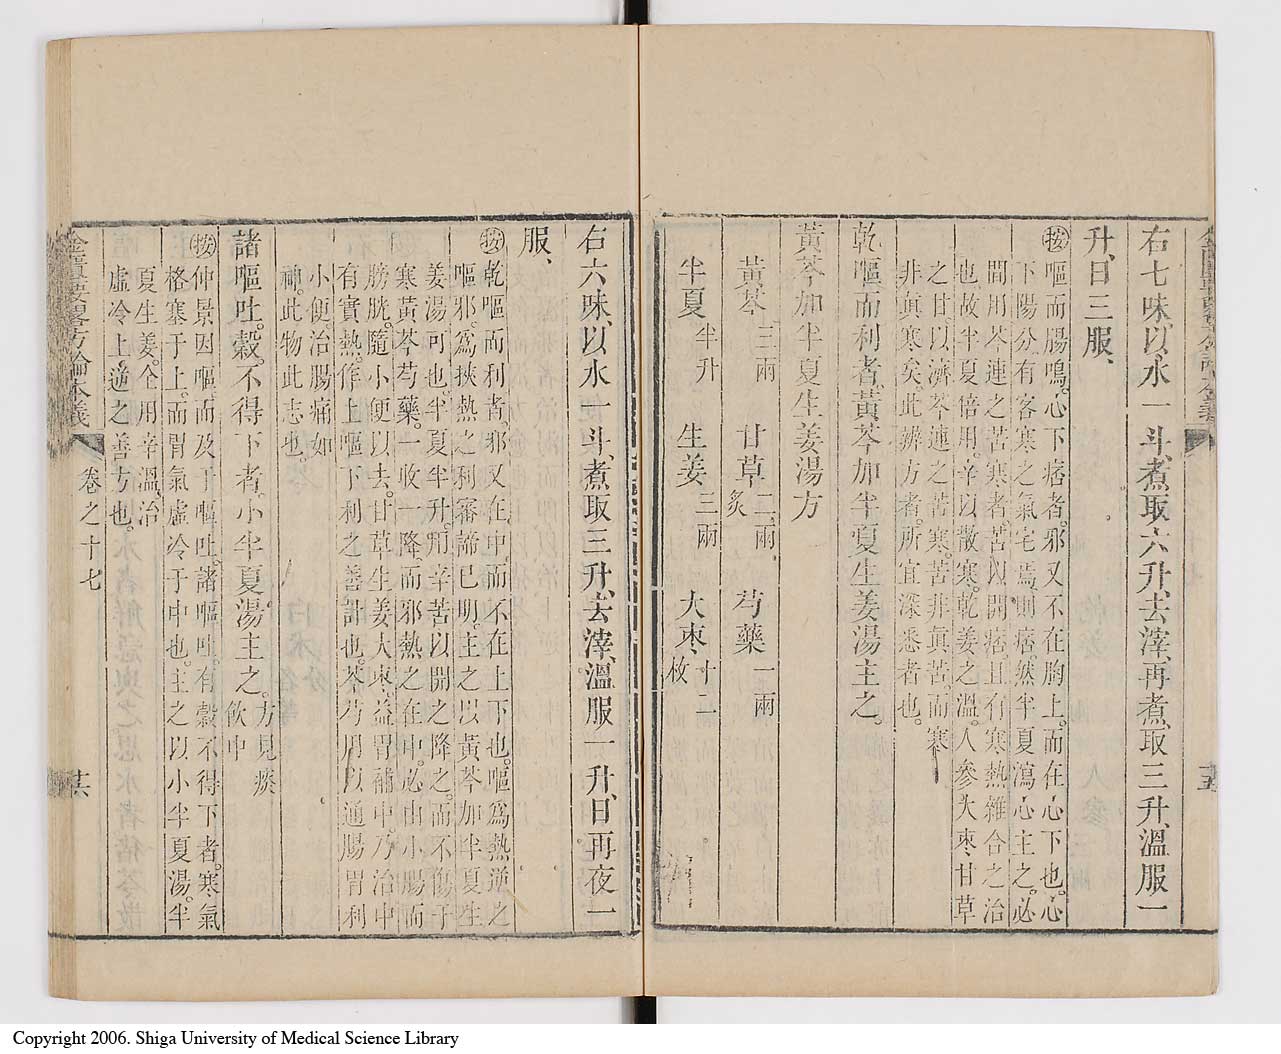 右七味、以水一斗、煮取六升、去滓、再煮、取三升、溫服一
升、日三服、
按嘔而腸鳴。心下痞者。邪又不在胸上。而在心下也。心
下陽分有客寒之氣宅焉。則痞然半夏瀉心主之。必
間用芩連之苦寒者。苦以開痞。且有寒熱雜合之治
也。故半夏倍用。辛以散寒。乾姜之溫。人參大枣甘草
之甘。以濟芩連之苦寒。苦非眞苦。而寒
非眞寒矣。此辨方者。所宜深悉者也。
乾嘔而利者。黃芩加半夏生姜湯主之。
黃芩加半夏生姜湯方
黃芩三兩 甘草二兩炙 芍藥一兩
半夏半升 生姜三兩 大枣十二枚
右六味、以水一斗、煮取三升、去滓、溫服一升、日再夜一
服、
按乾嘔而利者。邪又在中。而不在上下也。嘔爲熱逆之
嘔邪。爲挾熱之利。審諦已明。主之以黃芩加半夏生
姜湯可也。半夏半升。用辛苦以開之降之。而不傷于
寒。黃芩芍藥。一收一降。而邪熱之在中。必由小腸而
膀胱。隨小便以去。甘草生姜大枣。益胃補中。乃治中
有實熱。作上嘔下利之善計也。芩芍用以通腸胃利
小便。治腸痛如
神。此物此志也。
諸嘔吐。穀。不得下者。小半夏湯主之。方見痰飲中
按仲景因嘔。而及于嘔吐。諸嘔吐。有穀不得下者。寒氣
格塞于上。而胃氣虛冷于中也。主之以小半夏湯。半
夏生姜。仝用辛溫。治
虛冷上逆之善方也。
金匱要畧方論本義
卷之十七
廿六
Copyright 2006. Shiga University of Medical Science Library